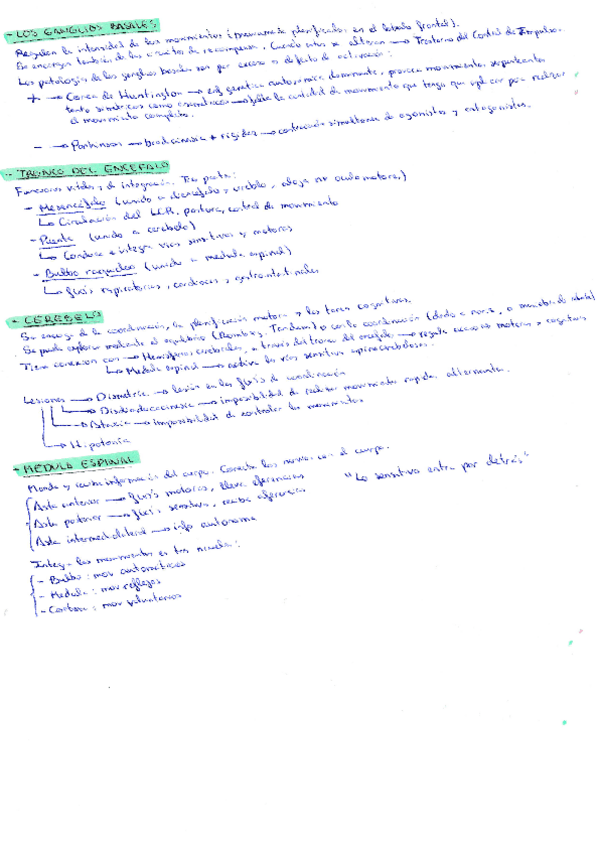 - LOS GANGLIOS BASALES
Regulan la intensidad de los movimientos (previamente planificados en el lóbulo frontal).
Se encargan también de los circuitos de recompensa. Cuando estos se alteran → Trastorno del Control de Impulsos.
Las patologías de los ganglios basales son por exceso o defecto de activación:
+ → Corea de Huntington → enf genética autosómica dominante, provoca movimientos repentinos
tanto simétricos como asimétricos → falla la cantidad de movimiento que tengo que aplicar para realizar
el movimiento completo.
- → Parkinson → bradicinesia + rigidez → contracción simultánea de agonistas y antagonistas.
- TRONCO DEL ENCÉFALO
Funciones vitales y de integración. Tres partes:
- Mesencéfalo (unido a diencéfalo y cerebelo, aloja nn oculomotores)
↳ Circulación del LCR, postura, control de movimiento
- Puente (unido a cerebelo)
↳ Conduce e integra vías sensitivas y motoras
- Bulbo raquídeo (unido a médula espinal)
↳ funcs respiratorias, cardiacas y gastrointestinales
- CEREBELO
Se encarga de la coordinación, la planificación motora y las tareas cognitivas.
Se puede explorar mediante el equilibrio (Romberg, Tándem) o con la coordinación (dedo a nariz, o
Tiene conexión con → Hemisferios cerebrales, a través del tronco del encéfalo → regula ejecución motora y cognitiva
↳ Médula espinal → activa las vías sensitivas espinocerebelosas.
Lesiones → Dismetría → lesión en las funcs de coordinación
→ Disdiadococinesia → imposibilidad de realizar movimientos rápidos alternantes
→ Ataxia → imposibilidad de controlar los movimientos
→ Hipotonía
- MÉDULA ESPINAL
Manda y recibe información del cuerpo. Conecta los nervios con el cuerpo.
Asta anterior → funcs motoras, lleva eferencias
Asta posterior → funcs sensitivas, recibe aferencias
Asta intermediolateral → info autónoma
"Lo sensitivo entra por detrás"
Integra los movimientos en tres niveles:
- Bulbo: mov automáticos
- Médula: mov reflejos
- Corteza: mov voluntarios